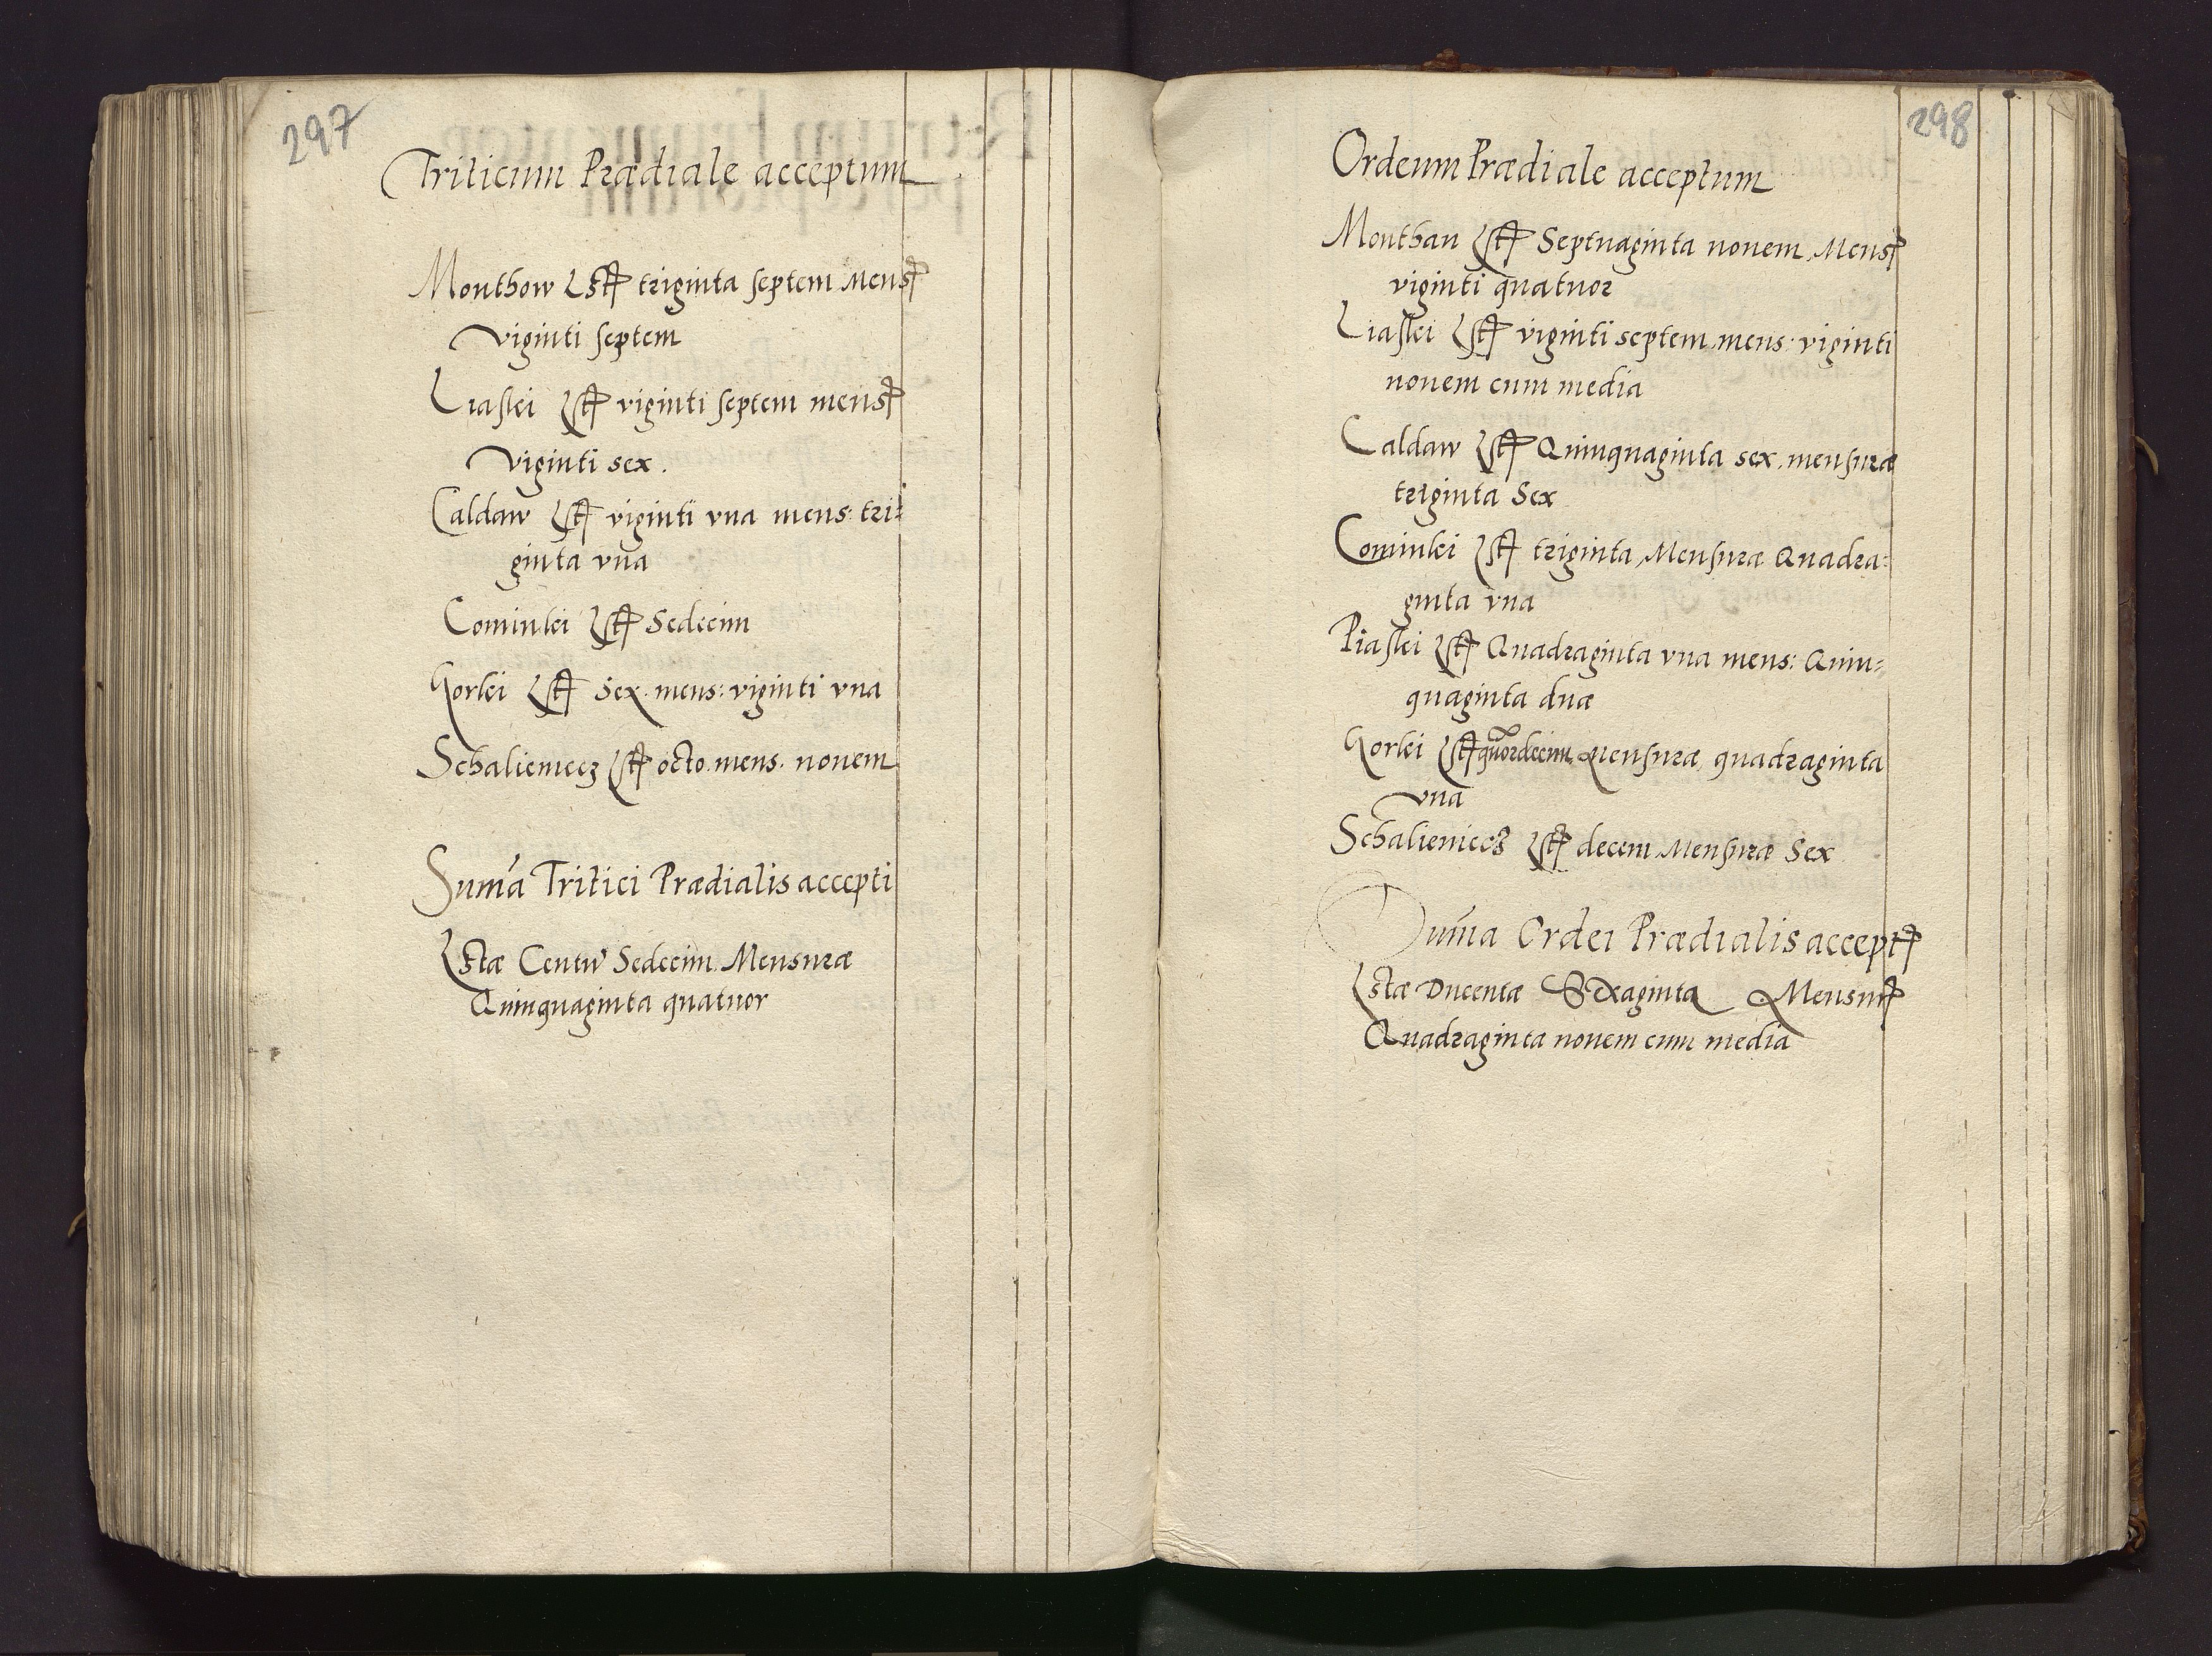 297
Triticum Prædiale acceptum
Monthow Lst triginta septem Mens
viginti septem
Liaskei Lst viginti septem mens
viginti sex.
Caldaw Lst viginti vna mens: tri=
ginta vna
Cominkei Lst Sedecim
Gorkei Lst Sex. mens: viginti vna
Schalieniecz Lst octo. mens. nouem
Suma Tritici Prædialis accepti
Lstæ Centu Sedecim Mensuræ
Quinquaginta quatuor
298
Ordeum Prædiale acceptum
Monthau Lst Septuaginta nouem, Mens
viginti quatuor
Liaskei Lst viginti septem, mens: viginti
nouem cum media
Caldaw Lst Quinquaginta sex, mensuræ
triginta Sex
Cominkei Lst triginta, Mensuræ Quadra=
ginta vna
Piaskei Lst Quadraginta vna mens: Quin=
quaginta duæ
Gorkei Lst quordecim, Mensuræ, quadraginta
vna
Schalieniecz Lst decem Mensuræ Sex
Suma Ordei Prædialis accept
Lstæ Ducentæ Sexaginta Mensur
Quadraginta nouem cum media